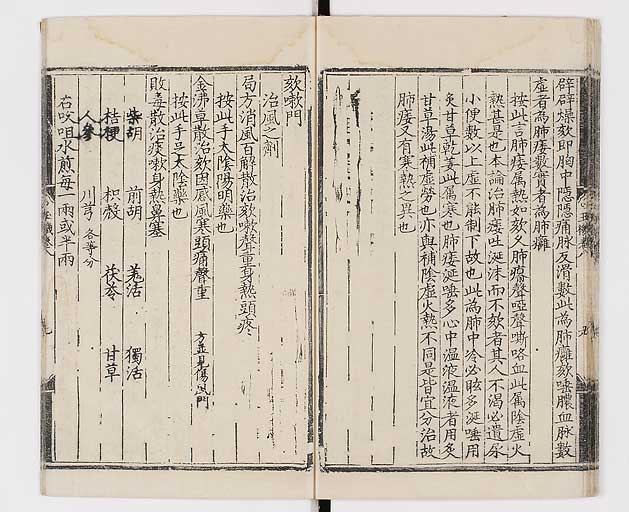 辟辟燥欬即胸中隠隠痛脉反滑數此為肺癰欬唾膿血脉數
虚者為肺痿數實者為肺癰
按此言肺痿属熱如欬久肺瘖聲啞聲嘶咯血此属陰虚火
熱甚是也本論治肺痿吐涎沫而不欬者其人不渴必遺尿
小便數以上虚不能制下故也此為肺中冷必眩多涎唾用
炙甘草乾姜此属寒也肺痿涎唾多心中温液温液者用炙
甘草湯此補虚勞也亦與補陰虚火熱不同是皆宜分治故
肺痿又有寒熱之異也
欬嗽門
治風之劑
局方消風百解散治欬嗽聲重身熱頭疼
按此手太陰陽明藥也
金沸草散治欬因感風寒頭痛聲重 方並見傷風門
按此手足太陰藥也
敗毒散治痰嗽身熱鼻塞
柴胡 前胡 羗活 獨活
桔梗 枳殻 茯苓 甘草
人參 川芎 各等分
右㕮咀水煎每一兩或半兩